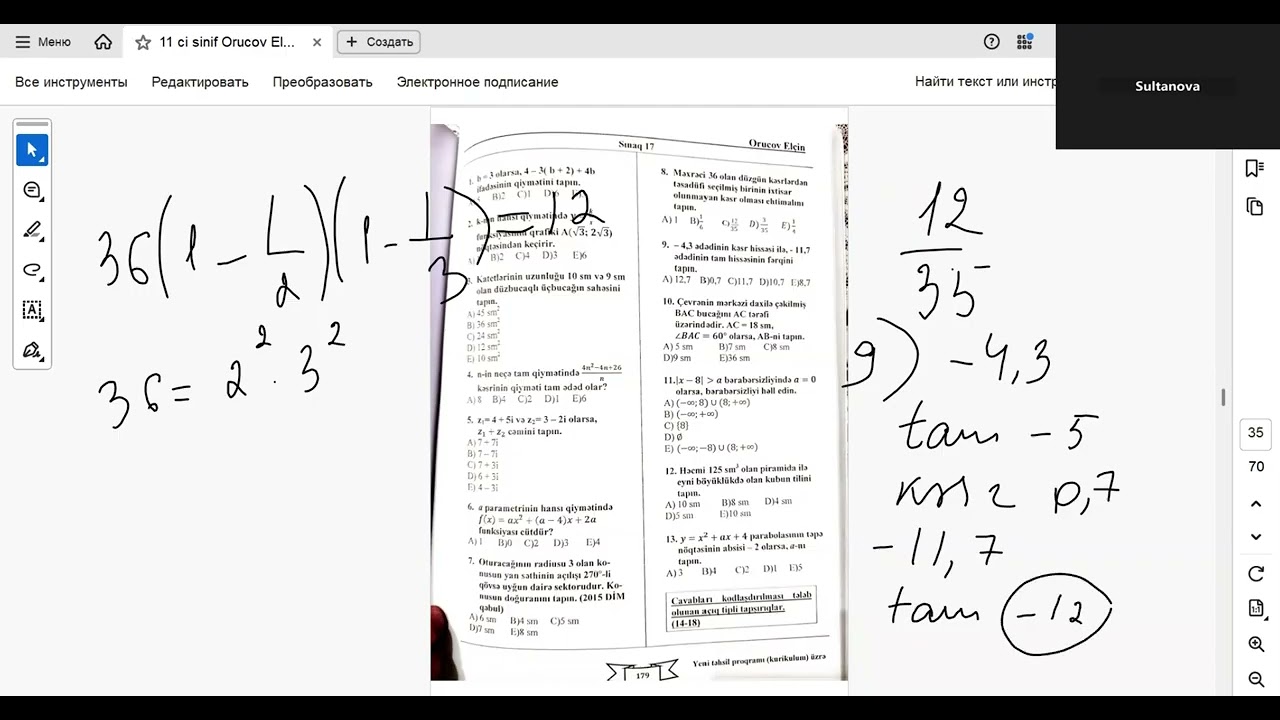 Меню
11 ci sinif Orucov El...
Создать
Все инструменты
Редактировать
Преобразовать
Электронное подписание
Найти текст или инстр
Sultanova
36(1 - 1/2)(1 - 1/3) = 12
36 = 2² · 3²
Sınaq 17
Orucov Elçin
1. b = 3 olarsa, 4 − 3( b + 2) + 4b
ifadəsinin qiymətini tapın.
B)2 C)1
2. k-nın hansı qiymətində
funksiyasının qrafiki A(√3; 2√3)
nöqtəsindən keçirir.
B)2 C)4 D)3 E)6
3. Katetlərinin uzunluğu 10 sm və 9 sm
olan düzbucaqlı üçbucağın sahəsini
tapın.
A) 45 sm²
B) 36 sm²
C) 24 sm²
D) 12 sm²
E) 10 sm²
4. n-in neçə tam qiymətində (4n²−4n+26)/n
kəsrinin qiyməti tam ədəd olar?
A) 8 B)4 C)2 D)1 E)6
5. z₁= 4 + 5i və z₂= 3 − 2i olarsa,
z₁ + z₂ cəmini tapın.
A) 7 + 7i
B) 7 − 7i
C) 7 + 3i
D) 6 + 3i
E) 4 − 3i
6. a parametrinin hansı qiymətində
f(x) = ax² + (a − 4)x + 2a
funksiyası cütdür?
A) 1 B)0 C)2 D)3 E)4
7. Oturacağının radiusu 3 olan ko-
nusun yan səthinin açılışı 270°-li
qövsə uyğun dairə sektorudur. Ko-
nusun doğuranını tapın. (2015 DİM
qəbul)
A) 6 sm B)4 sm C)5 sm
D)7 sm E)8 sm
8. Məxrəci 36 olan düzgün kəsrlərdən
təsadüfi seçilmiş birinin ixtisar
olunmayan kəsr olması ehtimalını
tapın.
A) 1 B) 1/6 C) 12/35 D) 3/35 E) 1/4
9. − 4,3 ədədinin kəsr hissəsi ilə, - 11,7
ədədinin tam hissəsinin fərqini
tapın.
A) 12,7 B)0,7 C)11,7 D)10,7 E)8,7
10. Çevrənin mərkəzi daxilə çəkilmiş
BAC bucağını AC tərəfi
üzərindədir. AC = 18 sm,
∠BAC = 60° olarsa, AB-ni tapın.
A) 5 sm B)7 sm C)8 sm
D)9 sm E)36 sm
11.|x − 8| > a bərabərsizliyində a = 0
olarsa, bərabərsizliyi həll edin.
A) (−∞; 8) ∪ (8; +∞)
B) (−∞; +∞)
C) {8}
D) ∅
E) (−∞; −8) ∪ (8; +∞)
12. Həcmi 125 sm³ olan piramida ilə
eyni böyüklükdə olan kubun tilini
tapın.
A) 10 sm B)8 sm D)4 sm
D)5 sm E)10 sm
13. y = x² + ax + 4 parabolasının təpə
nöqtəsinin absisi − 2 olarsa, a-nı
tapın.
A) 3 B)4 C)2 D)1 E)5
Cavabları kodlaşdırılması tələb
olunan açıq tipli tapşırıqlar.
(14-18)
179
Yeni təhsil proqramı (kurikulum) üzrə
12/35
9) -4,3
tam -5
kəsr 0,7
-11,7
tam -12
35
70